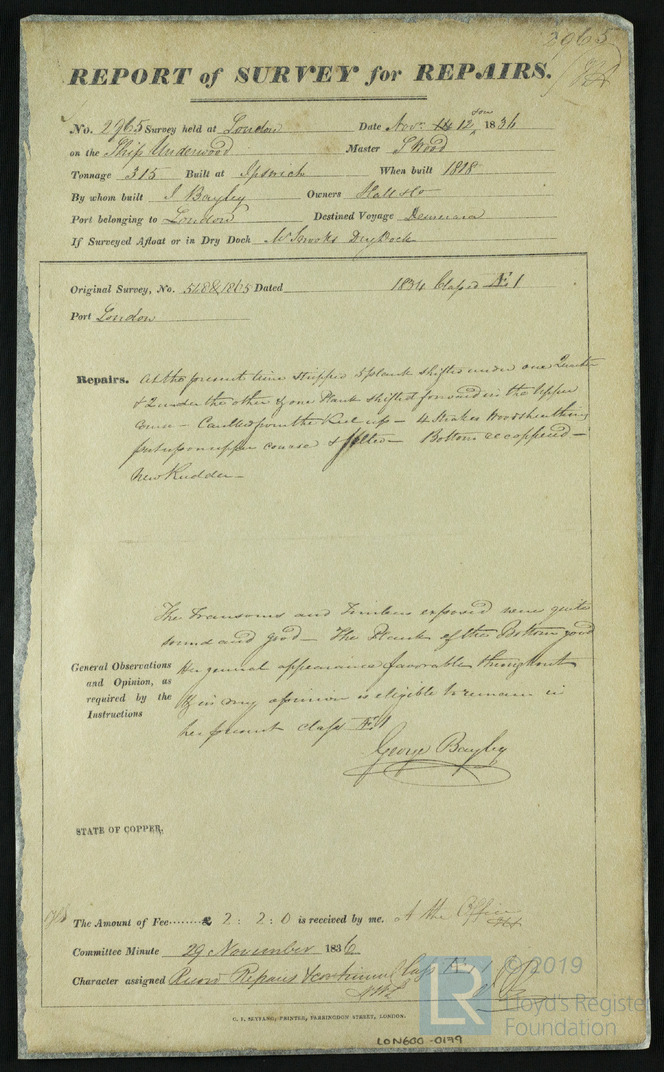 2965
REPORT of SURVEY for REPAIRS.
No. 2965 Survey held at London Date Novr. 14 12 1836
on the Ship Underwood Master
Tonnage 315 Built at Ipswich When built 1818
By whom built J Bayley Owners Hall & Co
Port belonging to London Destined Voyage Demerara
If Surveyed Afloat or in Dry Dock Mr Dry Dock
Original Survey, No. 518 & 1865 Dated 1834 Classed Æ 1
Port London
Repairs. At the present time stripped 3 plank shifted under one Quarter
& 2 under the other & one Plank shifted forward in the Upper
Course – Caulked from the Keel up – 4 Strakes Wood sheathing
put upon upper course & felted – Bottom recoppered –
New Rudder –
The Transoms and Timbers exposed were quite
sound and good – The Plank of the Bottom good
Her general appearance favorable throughout
General Observations and Opinion, as required by the Instructions
& in my opinion is eligible to remain in
her present class Æ 1
George Bayley
STATE OF COPPER,
The Amount of Fee........£ 2 : 2 : 0 is received by me. At the Office
Committee Minute 29 November 1836
Character assigned Record Repairs & continued Class Æ 1
© 2019
LR
Lloyd's Register
Foundation
C. F. SEYFANG, PRINTER, FARRINGDON STREET, LONDON.
LON600-0179